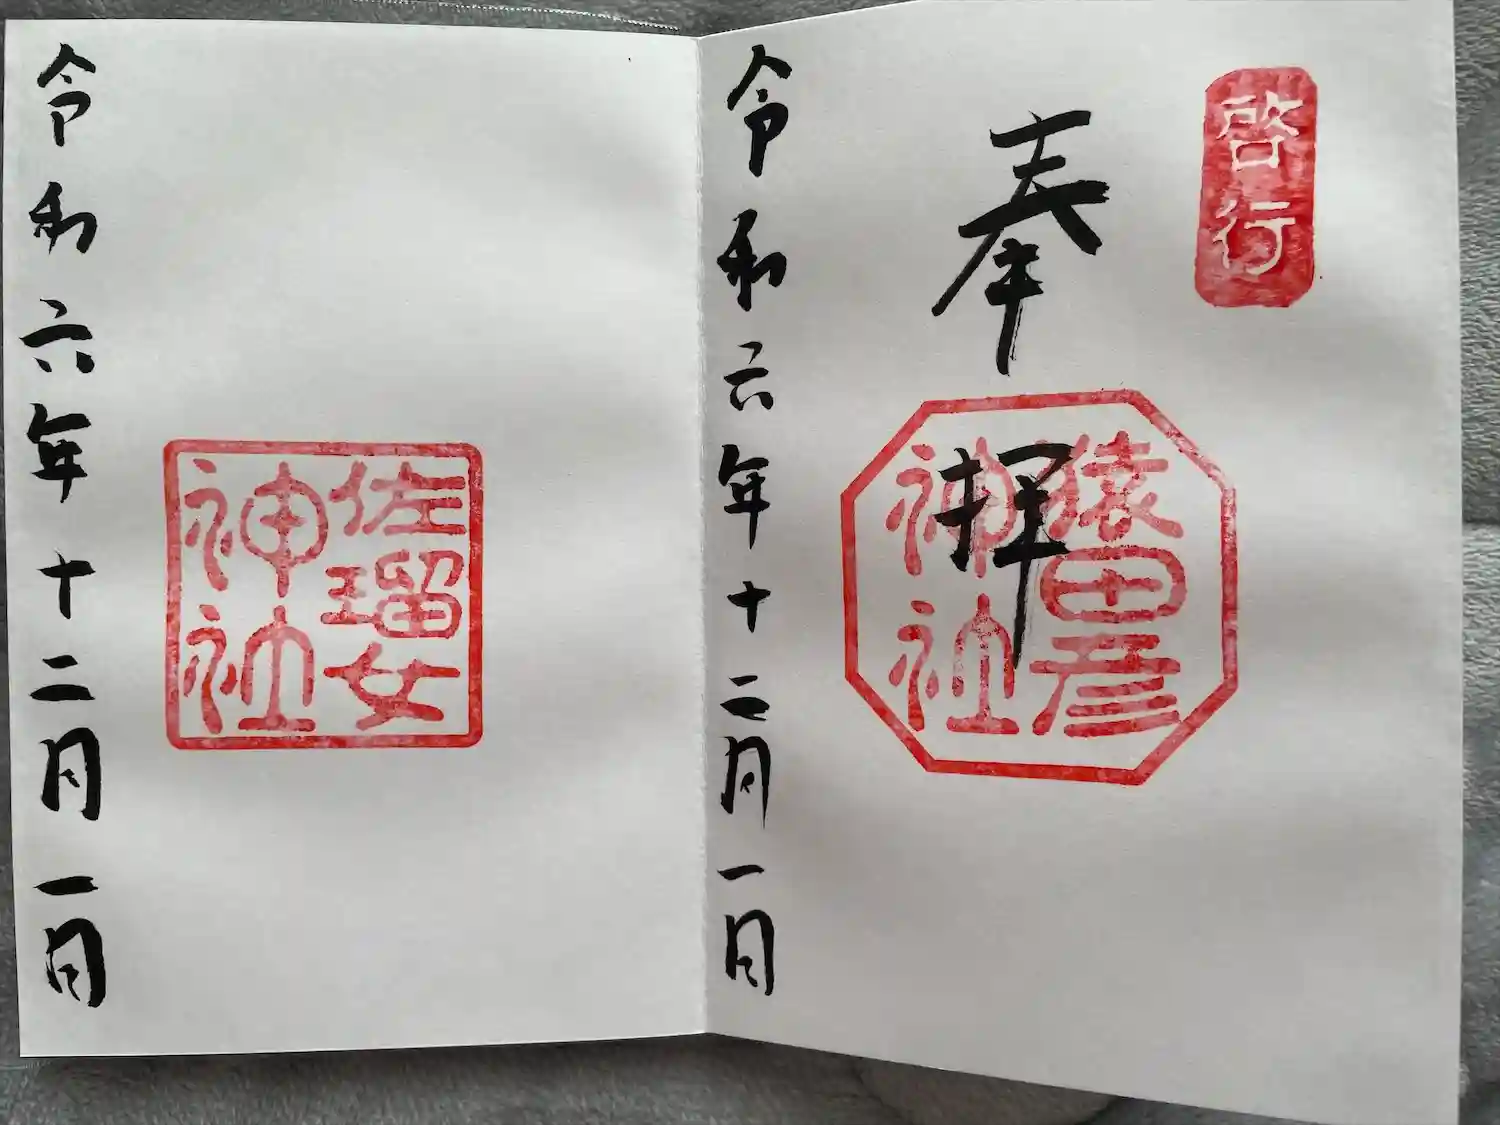 啓行
奉拝
猿田彦
神社
令和六年十二月一日
佐瑠女
神社
令和六年十二月一日